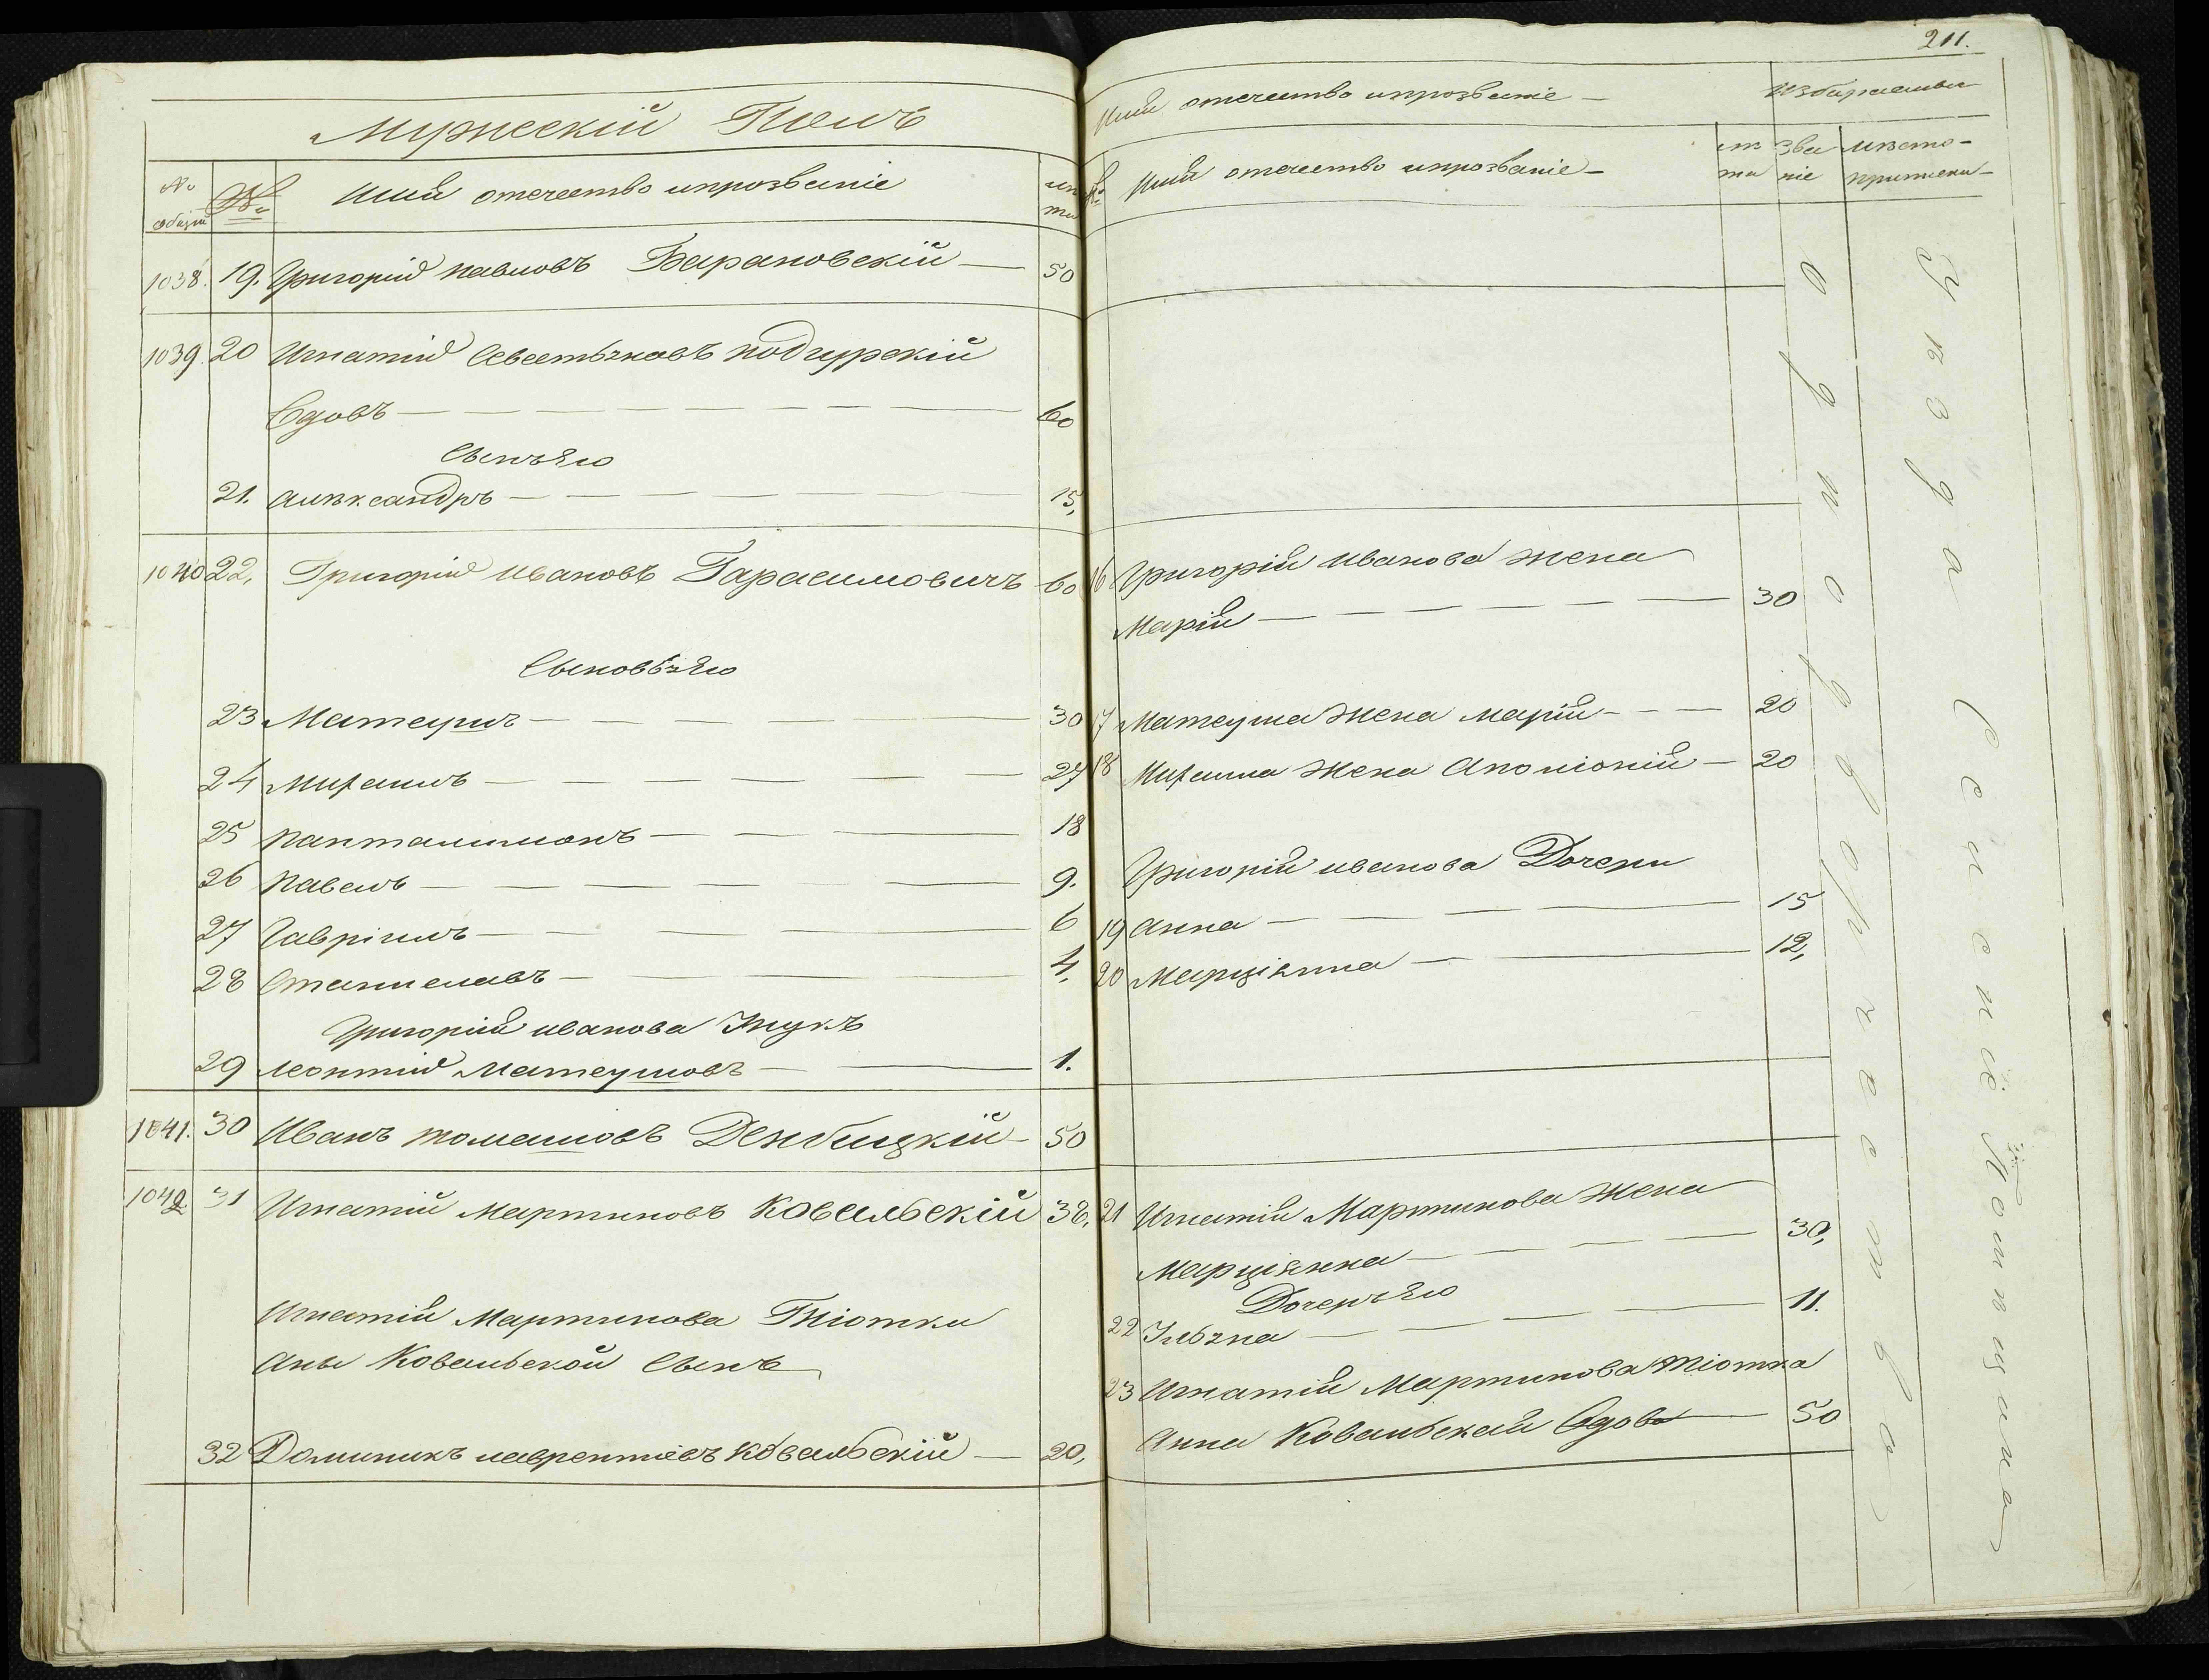 Мужескій Полъ
№ общій
№
Имя отечество и прозваніе
лѣта
1038. 19. Григорій Павловъ Барановскій — 50
1039. 20 Игнатій Севестьяновъ Подгурскій
Вдовъ — 60
Сынъ Его
21. Алѣксандръ — 15,
1040 22, Григорій Ивановъ Гарасимовичъ 60
Сыновья Его
23 Матеушъ — 30
24 Михаилъ — 27
25 Панталимонъ — 18
26 Павелъ — 9.
27 Гавріилъ — 6
28 Станиславъ — 4.
Григорія Иванова Внукъ
29 Леонтій Матеушовъ — 1.
1041. 30 Иванъ Томашовъ Денбицкій — 50
1042 31 Игнатій Мартиновъ Ковальскій 38,
Игнатія Мартинова Тіотки
Аны Ковальской Сынъ
32 Доминикъ Лаврентіевъ Ковальскій — 20,
211.
Имя отечество и прозваніе —
№
Имя отечество и прозваніе —
лѣта
званіе
мѣсто приписки —
16 Григорія Иванова жена
Марія — 30
17 Матеуша жена Марія — 20
18 Михаила жена Аполіонія — 20
Григорія Иванова Дочери
19 Анна — 15
20 Марціяна — 12,
21 Игнатія Мартинова жена
Марціянна — 30,
Дочеръ Его
22 Ульяна — 11.
23 Игнатія Мартинова тіотка
Анна Ковальская Вдова — 50
однодворчества
Уѣзда Сенной Помѣщана